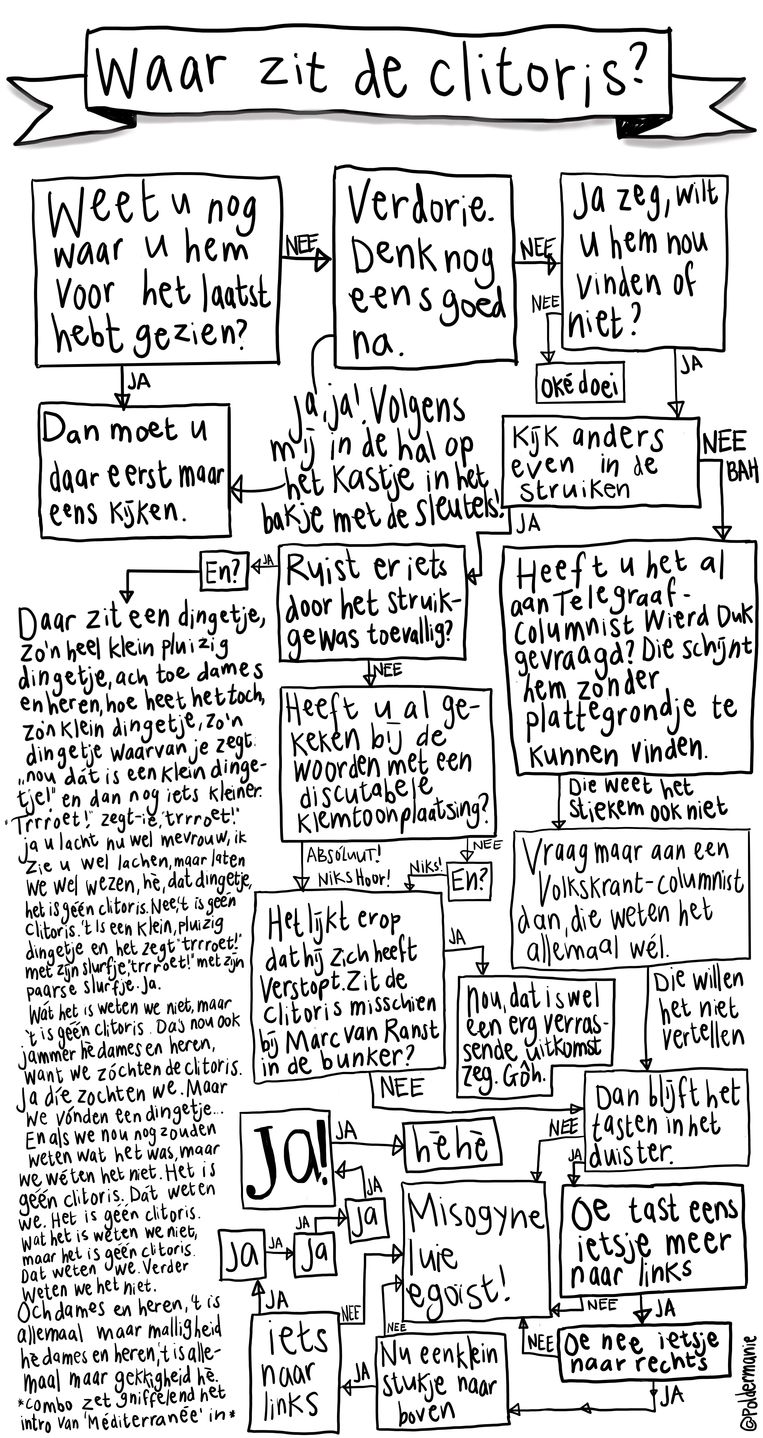 Waar zit de clitoris?
Weet u nog
waar u hem
voor het laatst
hebt gezien?
NEE
Verdorie.
Denk nog
eens goed
na.
NEE
Ja zeg, wilt
u hem nou
vinden of
niet?
NEE
Oké doei
JA
JA
Dan moet u
daar eerst maar
eens kijken.
Ja, ja! Volgens
mij in de hal op
het kastje in het
bakje met de sleutels!
Kijk anders
even in de
struiken
NEE
BAH
JA
Ruist er iets
door het struik-
gewas toevallig?
JA
En?
NEE
Daar zit een dingetje,
zo'n heel klein pluizig
dingetje, ach toe dames
en heren, hoe heet het toch,
zo'n klein dingetje, zo'n
dingetje waarvan je zegt.
„nou dát is een klein dinge-
tje!" en dan nog iets kleiner.
"Trrroet!" zegt-ie, "trrroet!"
ja u lacht nu wel mevrouw, ik
zie u wel lachen, maar laten
we wel wezen, hè, dat dingetje,
het is géén clitoris. Nee, 't is géén
clitoris. 't Is een klein, pluizig
dingetje en het zegt "trrroet!"
met zijn slurfje, "trrroet!" met zijn
paarse slurfje. Ja.
Wát het is weten we niet, maar
't is géén clitoris. Da's nou ook
jammer hè dames en heren,
want we zóchten de clitoris.
Ja díe zochten we. Maar
we vónden een dingetje...
En als we nou nog zouden
weten wat het wás, maar
we wéten het niet. Het is
géén clitoris. Dát weten
we. Het is géén clitoris.
Wat het is weten we niet,
maar het is géén clitoris.
Dat weten we. Verder
weten we het niet.
Och dames en heren, 't is
allemaal maar malligheid
hè dames en heren, 't is alle-
maal maar gekkigheid hè.
*combo zet gniffelend het
intro van 'Méditerranée' in*
Heeft u al ge-
keken bij de
woorden met een
discutabele
klemtoonplaatsing?
ABSÓLUUT!
NIKS HOOR!
NEE
En?
NIKS!
Heeft u het al
aan Telegraaf-
columnist Wierd Duk
gevraagd? Die schijnt
hem zonder
plattegrondje te
kunnen vinden.
Die weet het
stiekem ook niet
Vraag maar aan een
Volkskrant-columnist
dan, die weten het
allemaal wél.
Die willen
het niet
vertellen
Het lijkt erop
dat hij zich heeft
verstopt. Zit de
clitoris misschien
bij Marc van Ranst
in de bunker?
JA
Nou, dat is wel
een erg verras-
sende uitkomst
zeg. Gôh.
NEE
Dan blijft het
tasten in het
duister.
NEE
JA
Oe tast eens
ietsje meer
naar links
NEE
JA
Oe nee ietsje
naar rechts
NEE
JA
Misogyne
luie
egoïst!
Nu een klein
stukje naar
boven
NEE
JA
iets
naar
links
NEE
JA
Ja
JA
Ja
JA
Ja
JA
Ja!
JA
hèhè
@Poldermanie